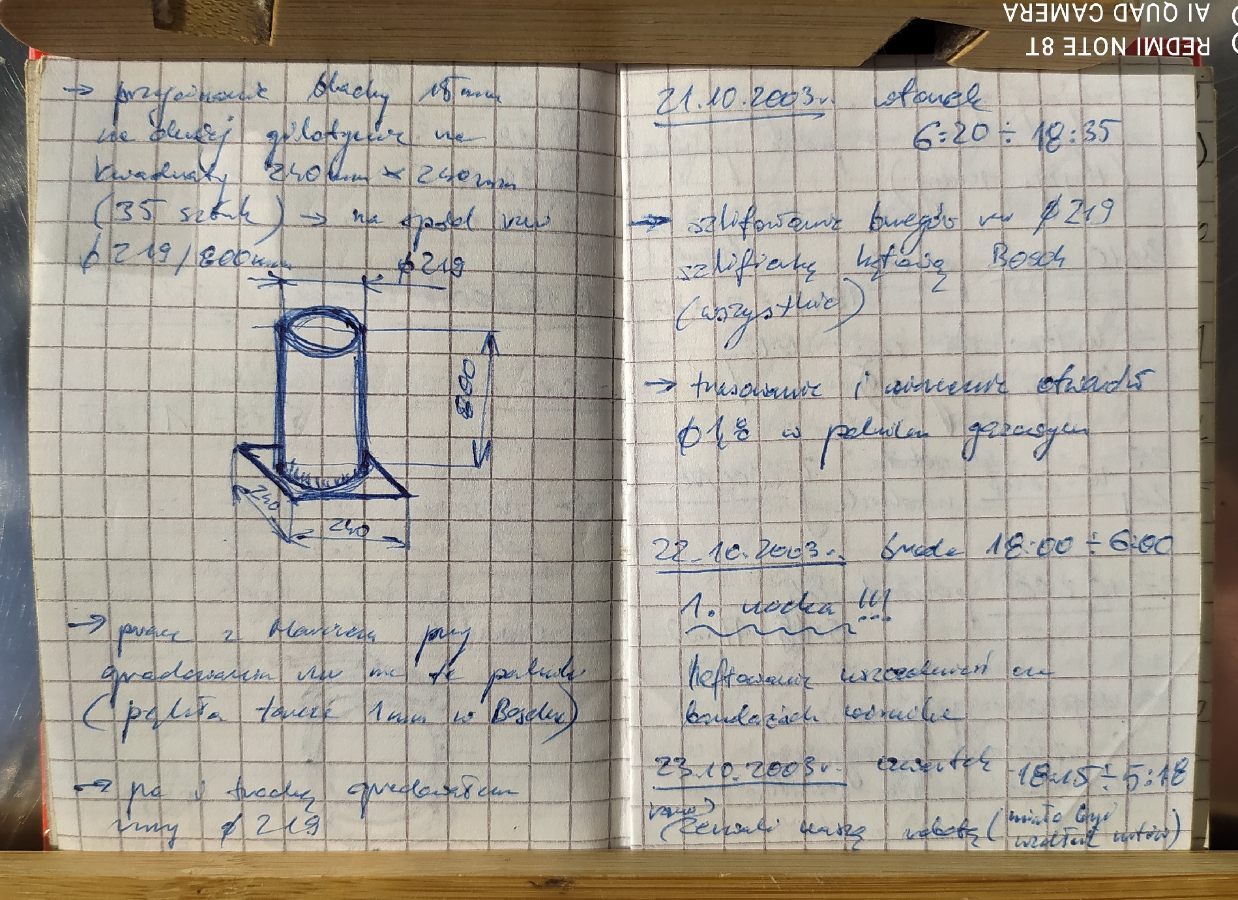 → przycinanie blachy 18mm
na dużej gilotynie na
kwadraty 240mm × 240mm
(35 sztuk) → na spód rur
ϕ219/800mm
ϕ219
800
240
240
→ praca z przy
gradowaniu rur na te
(pękła tarcza 1mm w Boschu)
→ po i trochę gradowałem
rury ϕ219
21.10.2003r. wtorek
6:20 ÷ 18:35
→ szlifowanie brzegów rur ϕ219
szlifierką kątową Bosch
(wszystkie)
→ trasowanie i wiercenie otworów
ϕ18 w
22.10.2003r. środa 18:00 ÷ 6:00
1. nocka !!!
heftowanie na
bandażach
23.10.2003r. czwartek 18:15 ÷ 5:18
naszą robotę (miało być